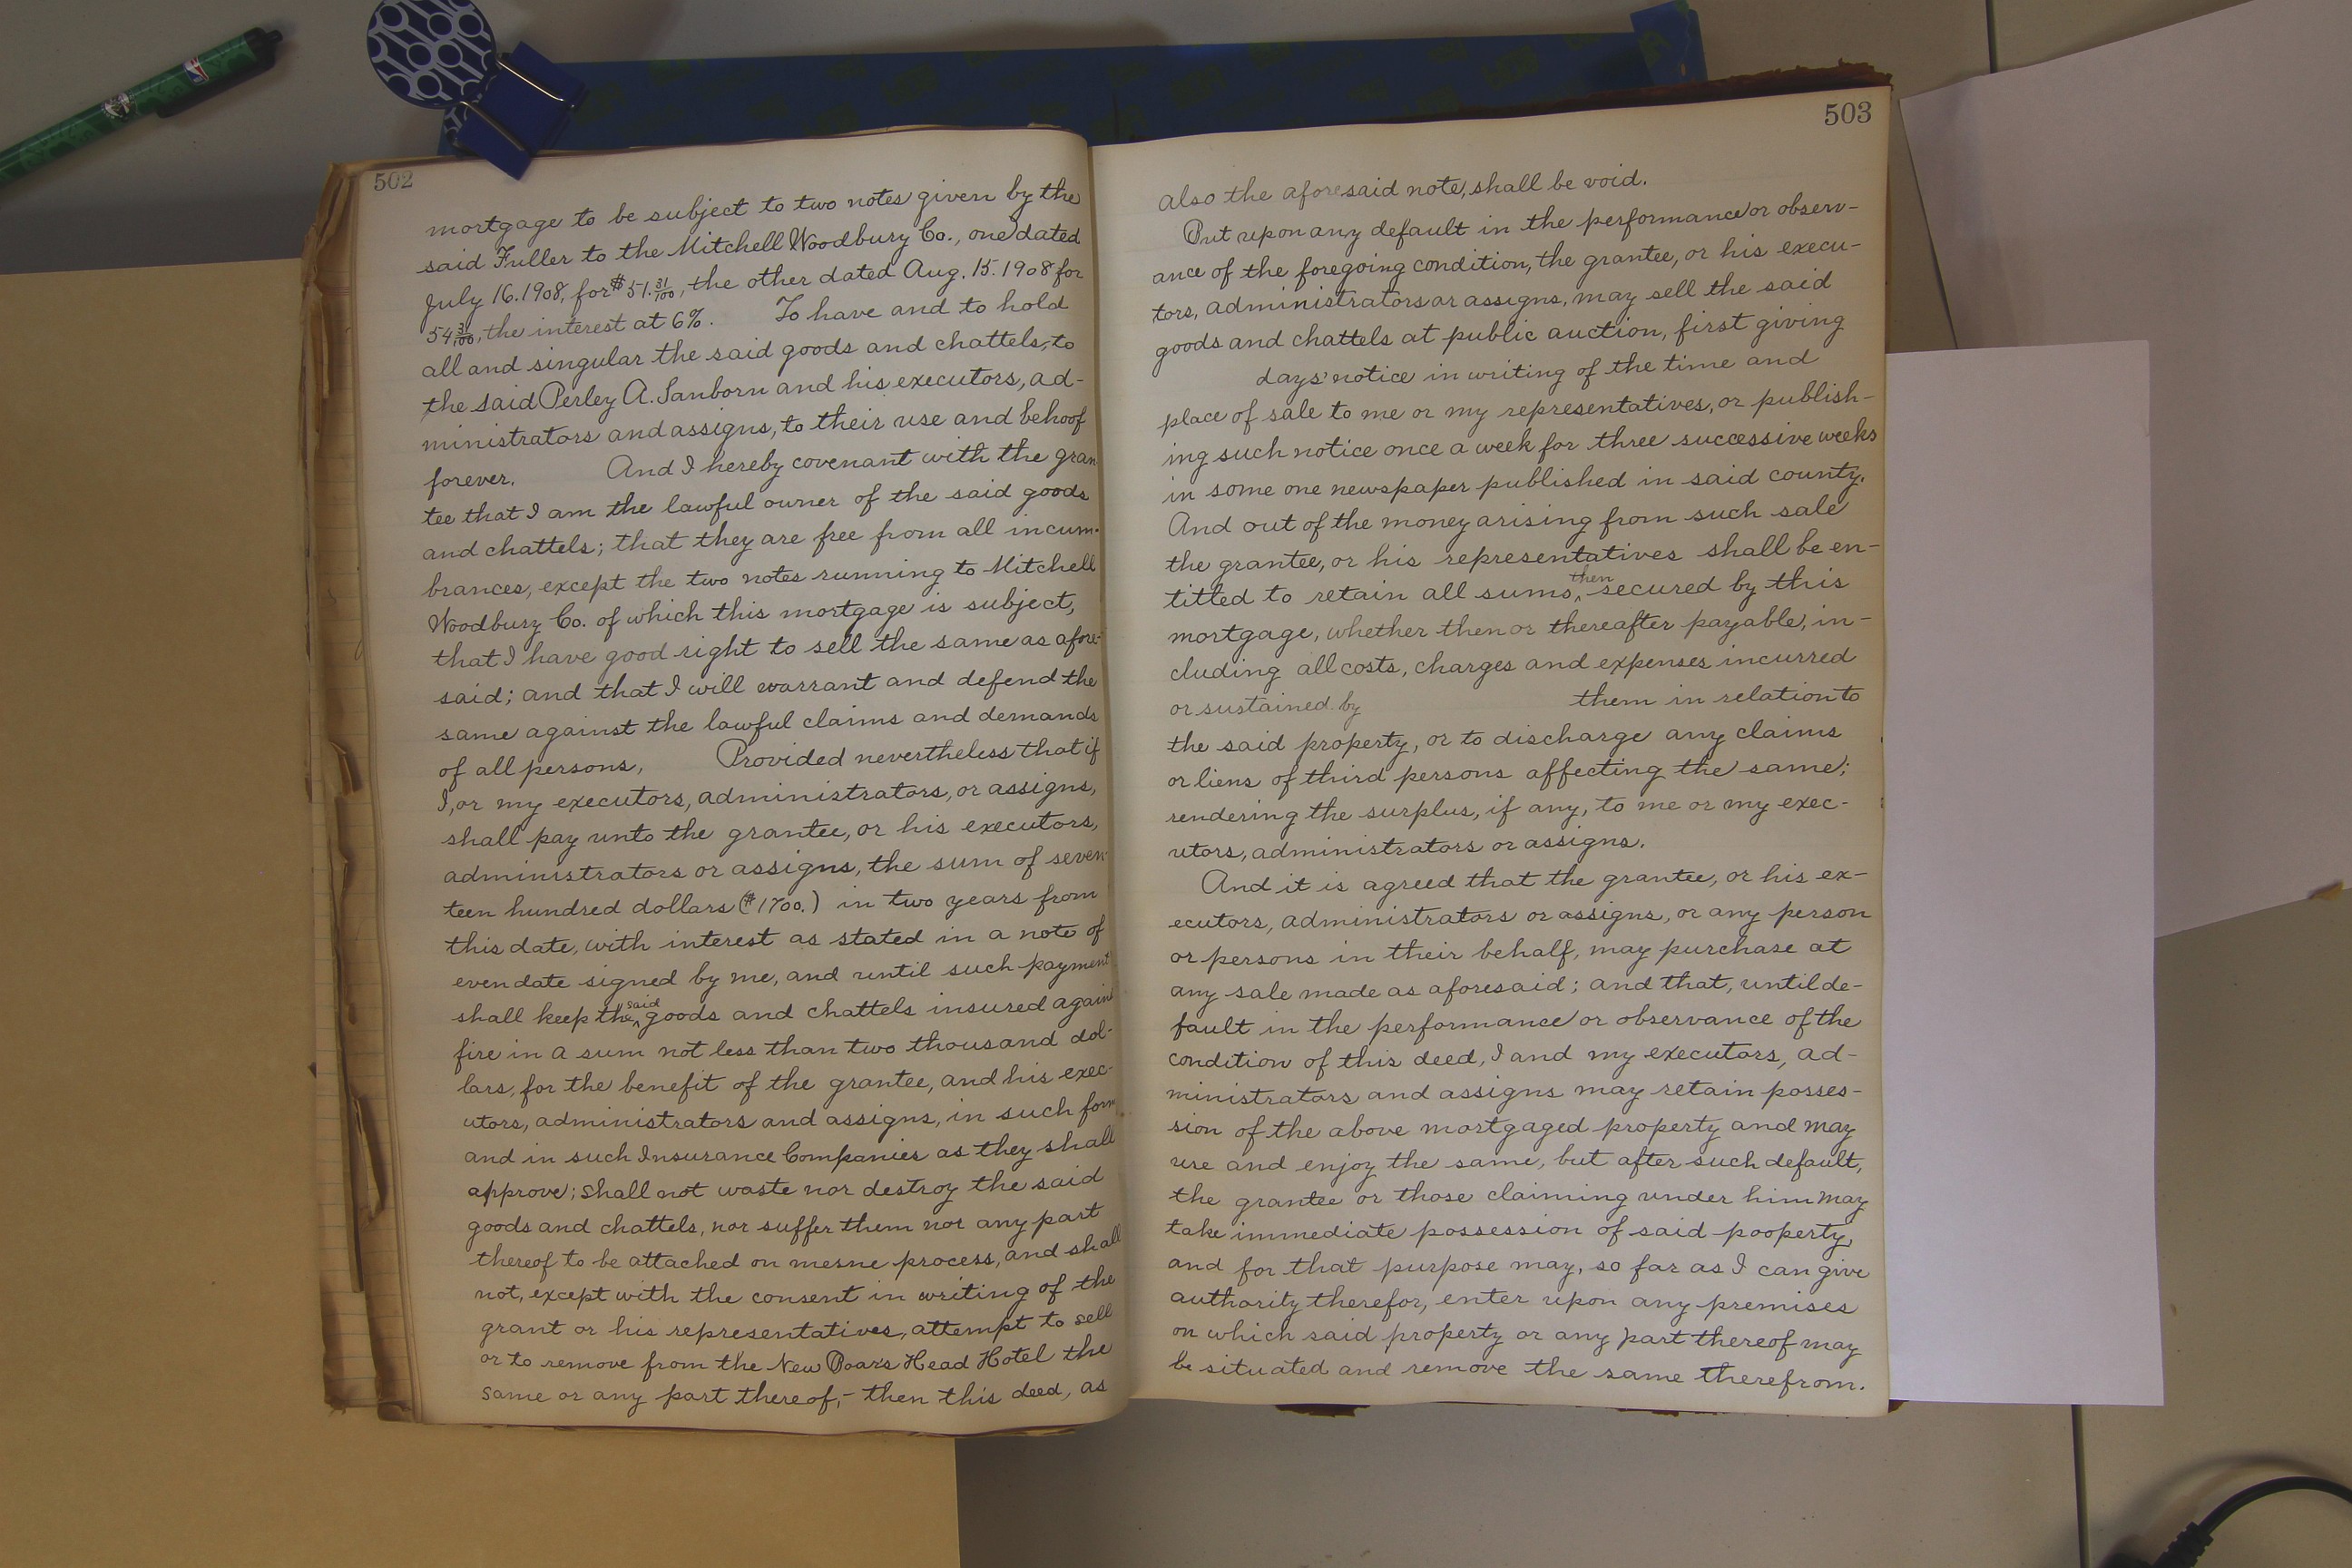 502
mortgage to be subject to two notes given by the
said Fuller to the Mitchell Woodbury Co., one dated
July 16. 1908, for $51.31/100, the other dated Aug. 15. 1908 for
54 31/100, the interest at 6%. To have and to hold
all and singular the said goods and chattels, to
the said Perley A. Sanborn and his executors, ad-
ministrators and assigns, to their use and behoof
forever. And I hereby covenant with the gran
tee that I am the lawful owner of the said goods
and chattels; that they are free from all incum-
brances, except the two notes running to Mitchell
Woodbury Co. of which this mortgage is subject,
that I have good right to sell the same as afore-
said; and that I will warrant and defend the
same against the lawful claims and demands
of all persons, Provided nevertheless that if
I, or my executors, administrators, or assigns,
shall pay unto the grantee, or his executors,
administrators or assigns, the sum of seven-
teen hundred dollars ($1700.) in two years from
this date, with interest as stated in a note of
even date signed by me, and until such payment
shall keep the said goods and chattels insured again
fire in a sum not less than two thousand dol-
lars, for the benefit of the grantee, and his exec-
utors, administrators and assigns, in such form
and in such Insurance Companies as they shall
approve; shall not waste nor destroy the said
goods and chattels, nor suffer them nor any part
thereof to be attached on mesne process, and shall
not, except with the consent in writing of the
grant or his representatives, attempt to sell
or to remove from the New Boar's Head Hotel the
same or any part thereof;- then this deed, as
503
also the aforesaid note, shall be void.
But upon any default in the performance or observ-
ance of the foregoing condition, the grantee, or his execu-
tors, administrators or assigns, may sell the said
goods and chattels at public auction, first giving
days' notice in writing of the time and
place of sale to me or my representatives, or publish-
ing such notice once a week for three successive weeks
in some one newspaper published in said county.
And out of the money arising from such sale
the grantee, or his representatives shall be en-
titted to retain all sums, then secured by this
mortgage, whether then or thereafter payable, in-
cluding all costs, charges and expenses incurred
or sustained by them in relation to
the said property, or to discharge any claims
or liens of third persons affecting the same;
rendering the surplus, if any, to me or my exec-
utors, administrators or assigns.
And it is agreed that the grantee, or his ex-
ecutors, administrators or assigns, or any person
or persons in their behalf, may purchase at
any sale made as aforesaid; and that, until de-
fault in the performance or observance of the
condition of this deed, I and my executors, ad-
ministrators and assigns may retain posses-
sion of the above mortgaged property and may
use and enjoy the same, but after such default,
the grantee or those claiming under him may
take immediate possession of said pooperty,
and for that purpose may, so far as I can give
authority therefor, enter upon any premises
on which said property or any part thereof may
be situated and remove the same therefrom.